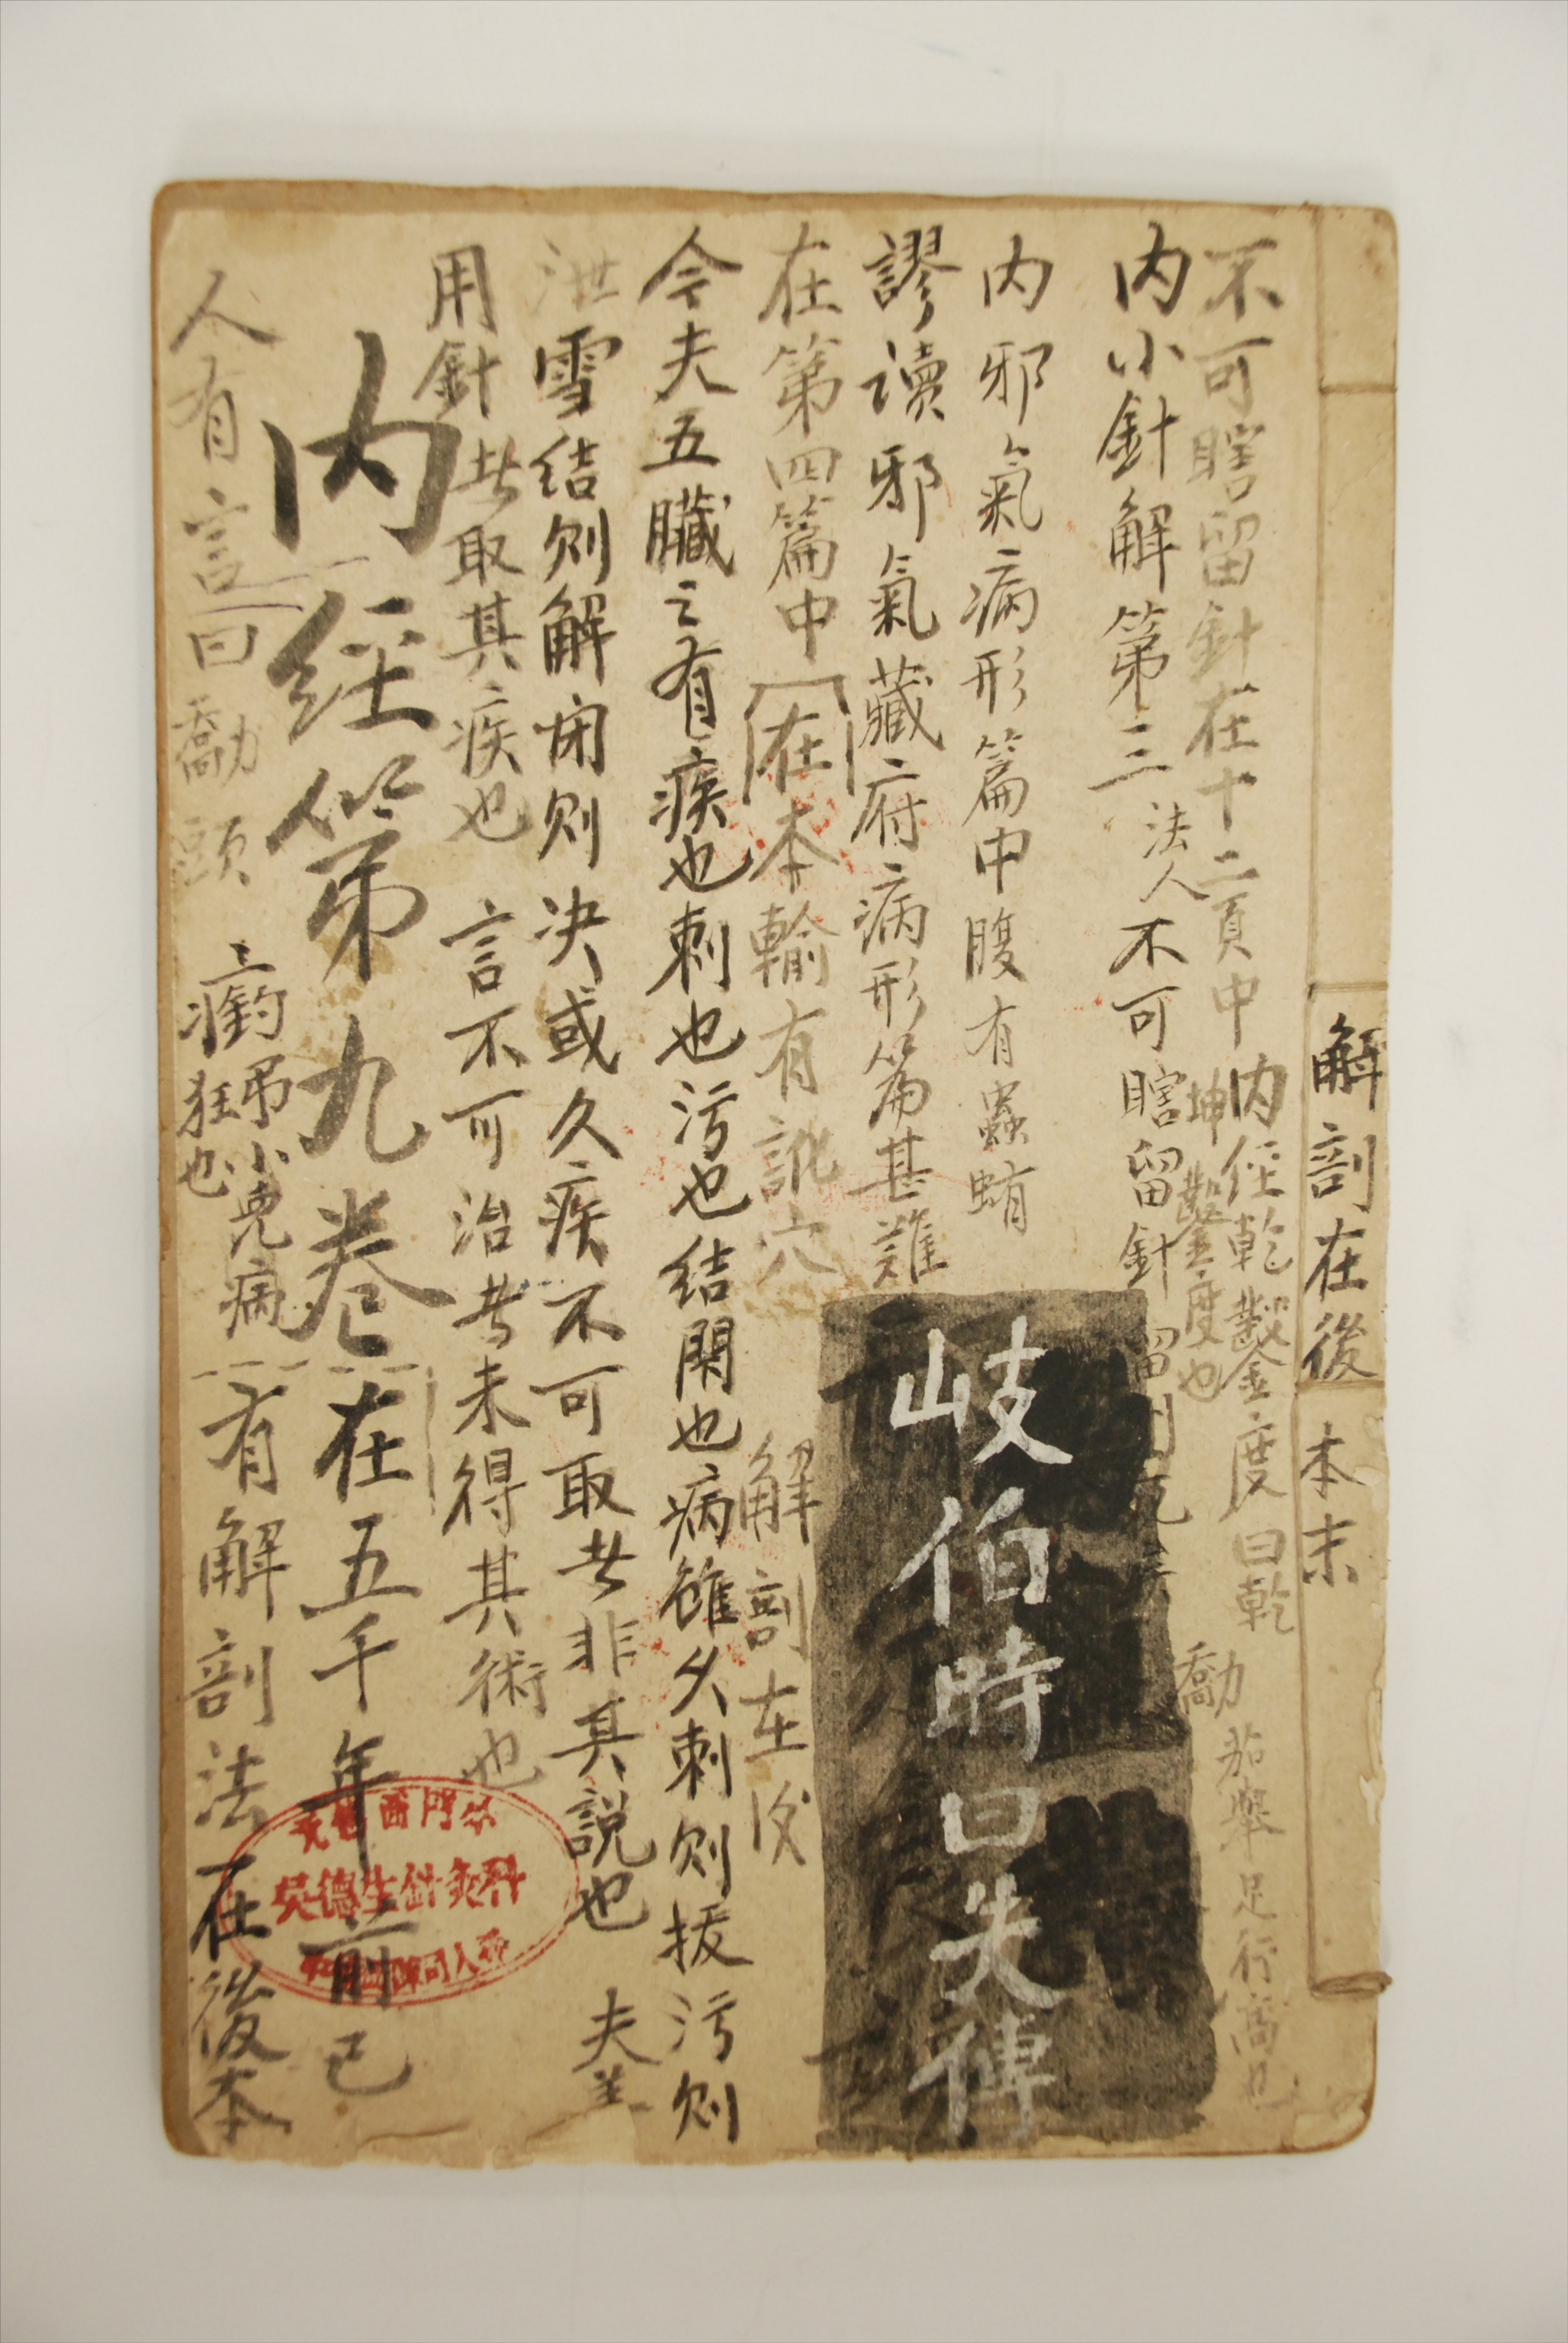 解剖在後 本末
不可瞎留針在十二頁中
内經乾鑿度曰乾
坤鑿度也
茄舉足行高也
内小針解第三
法人
不可瞎留針
内邪氣病形篇中腹有蟲蛕
謬讀邪氣藏府病形篇甚難
岐伯時曰失傳
在第四篇中 在本輸有訛穴
解剖在後
今夫五臟之有疾也刺也污也结閑也病雖久刺则拔污则
泄雪结则解闭则决或久疾不可取者非其説也 夫善
用針者取其疾也 言不可治者未得其術也
内經第九卷在五千年前已
人有言曰 頭
狂也
弔小児病
有解剖法在後本
吳德生針灸科